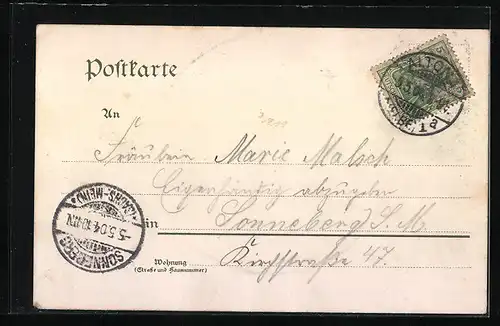 ALTONA
Postkarte
An
Fräulein Marie Malsch
Eigenhändig abzugeben
in Sonneberg S. M.
Kirchstraße 47.
Wohnung
(Straße und Hausnummer)
SONNEBERG
-5.5.04.10-11.N.
(SACHS.-MEIN.)